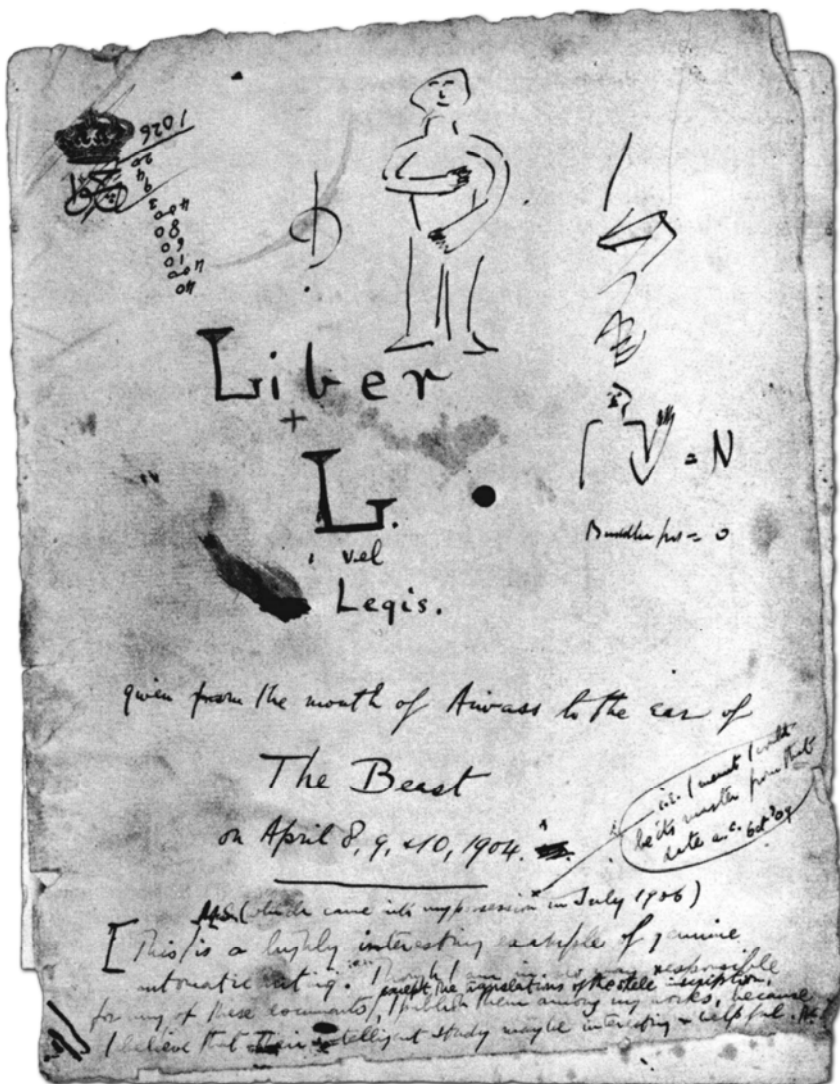 1026
20
9
4
3
400
80
60
10
400
40
Liber
+
L.
vel
Legis.
= N
Buddha = 0
given from the mouth of Aiwass to the ear of
The Beast
on April 8, 9, & 10, 1904.
i.e. I meant I would
be its master from that
date a.c. Oct '09
MS. (which came into my possession in July 1906)
[This is a highly interesting example of genuine
automatic writing. Though I am in no way responsible
except the translations of the stele inscription,
for any of these documents, I publish them among my works, because
I believe that their intelligent study may be interesting & helpful. A.C.